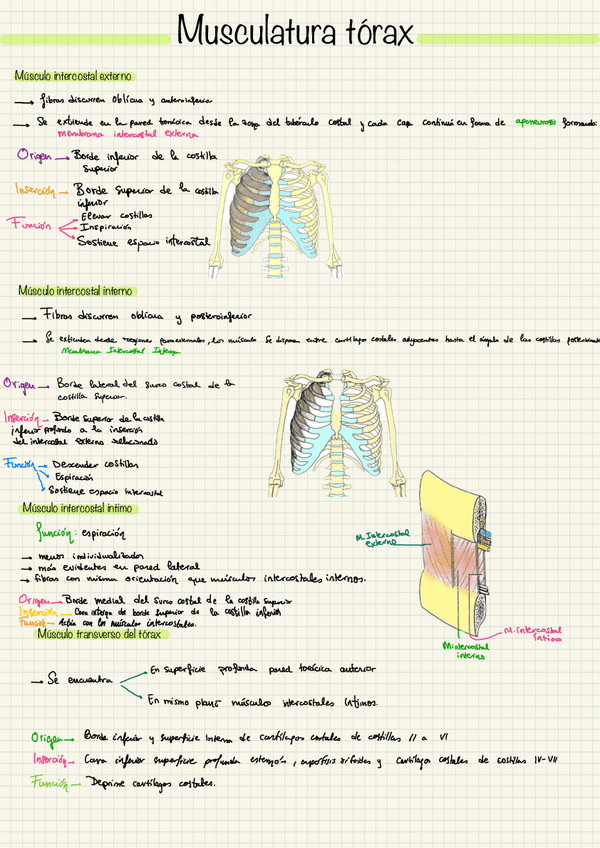 Musculatura tórax
Músculo intercostal externo
→ fibras discurren oblicua y anteroinferior
→ Se extiende en la pared torácica desde la zona del tubérculo costal y cada cap continuú en forma de aponeurosis formando:
membrana intercostal externa
Origen → Borde inferior de la costilla
superior
Inserción → Borde superior de la costilla
inferior
Función
Elevar costillas
Inspiración
Sostiene espacio intercostal
Músculo intercostal interno
→ Fibras discurren oblicua y posteroinferior
→ Se extienden desde regiones paraesternales, los músculo se disponen entre cartílagos costales adyacentes hasta el ángulo de las costillas
Membrana Intercostal Interna
Origen → Borde lateral del surco costal de la
costilla superior.
Inserción → Borde superior de la costilla
inferior profundo a la inserción
del intercostal externo relacionado
Función → Descender costillas
Espiración
Sostiene espacio intercostal
Músculo intercostal íntimo
función: espiración
→ menos individualizados
→ más evidentes en pared lateral
→ fibras con misma orientación que músculos intercostales internos.
Origen → Borde medial del surco costal de la costilla superior
Inserción → Cara interna de borde superior de la costilla inferior
Función → Actúa con los músculos intercostales.
M. Intercostal
externo
M. intercostal
íntimo
M. intercostal
interno
Músculo transverso del tórax
→ Se encuentra
En superficie profunda pared torácica anterior
En mismo plano músculos intercostales íntimos.
Origen → Borde inferior y superficie interna de cartílagos costales de costillas II a VI
Inserción → Cara inferior superficie profunda esternón, apófisis xifoides y cartílagos costales de costillas IV-VII
Función → Deprime cartílagos costales.